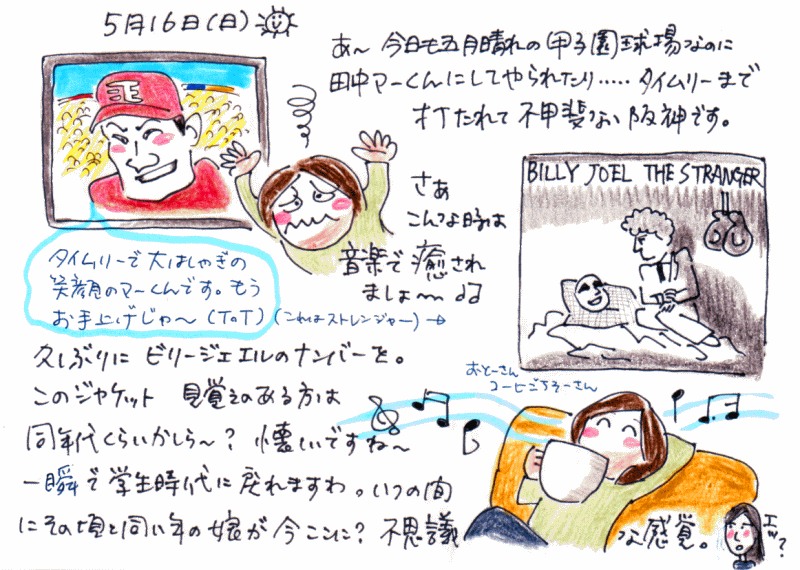 5月16日(日)
あ〜 今日も五月晴れの(甲子園)球場なのに
田中マーくんにしてやられたり……タイムリーまで
打たれて 不甲斐ない 阪神です。
E
さぁ
こんな時は
音楽で癒され
ましょ〜
BILLY JOEL THE STRANGER
タイムリーで大はしゃぎの
笑顔のマーくんです。もう
お手上げじゃ〜 (ToT)
(これはストレンジャー)→
久しぶりに ビリージョエルのナンバーを。
このジャケット 見覚えのある方は
同年代くらいかしら〜? 懐しいですね〜
一瞬で学生時代に戻れますわ。いつの間
にその頃と同い年の娘が今ここに? 不思議
な感覚。
おとーさん
コーヒごちそーさん
エッ?